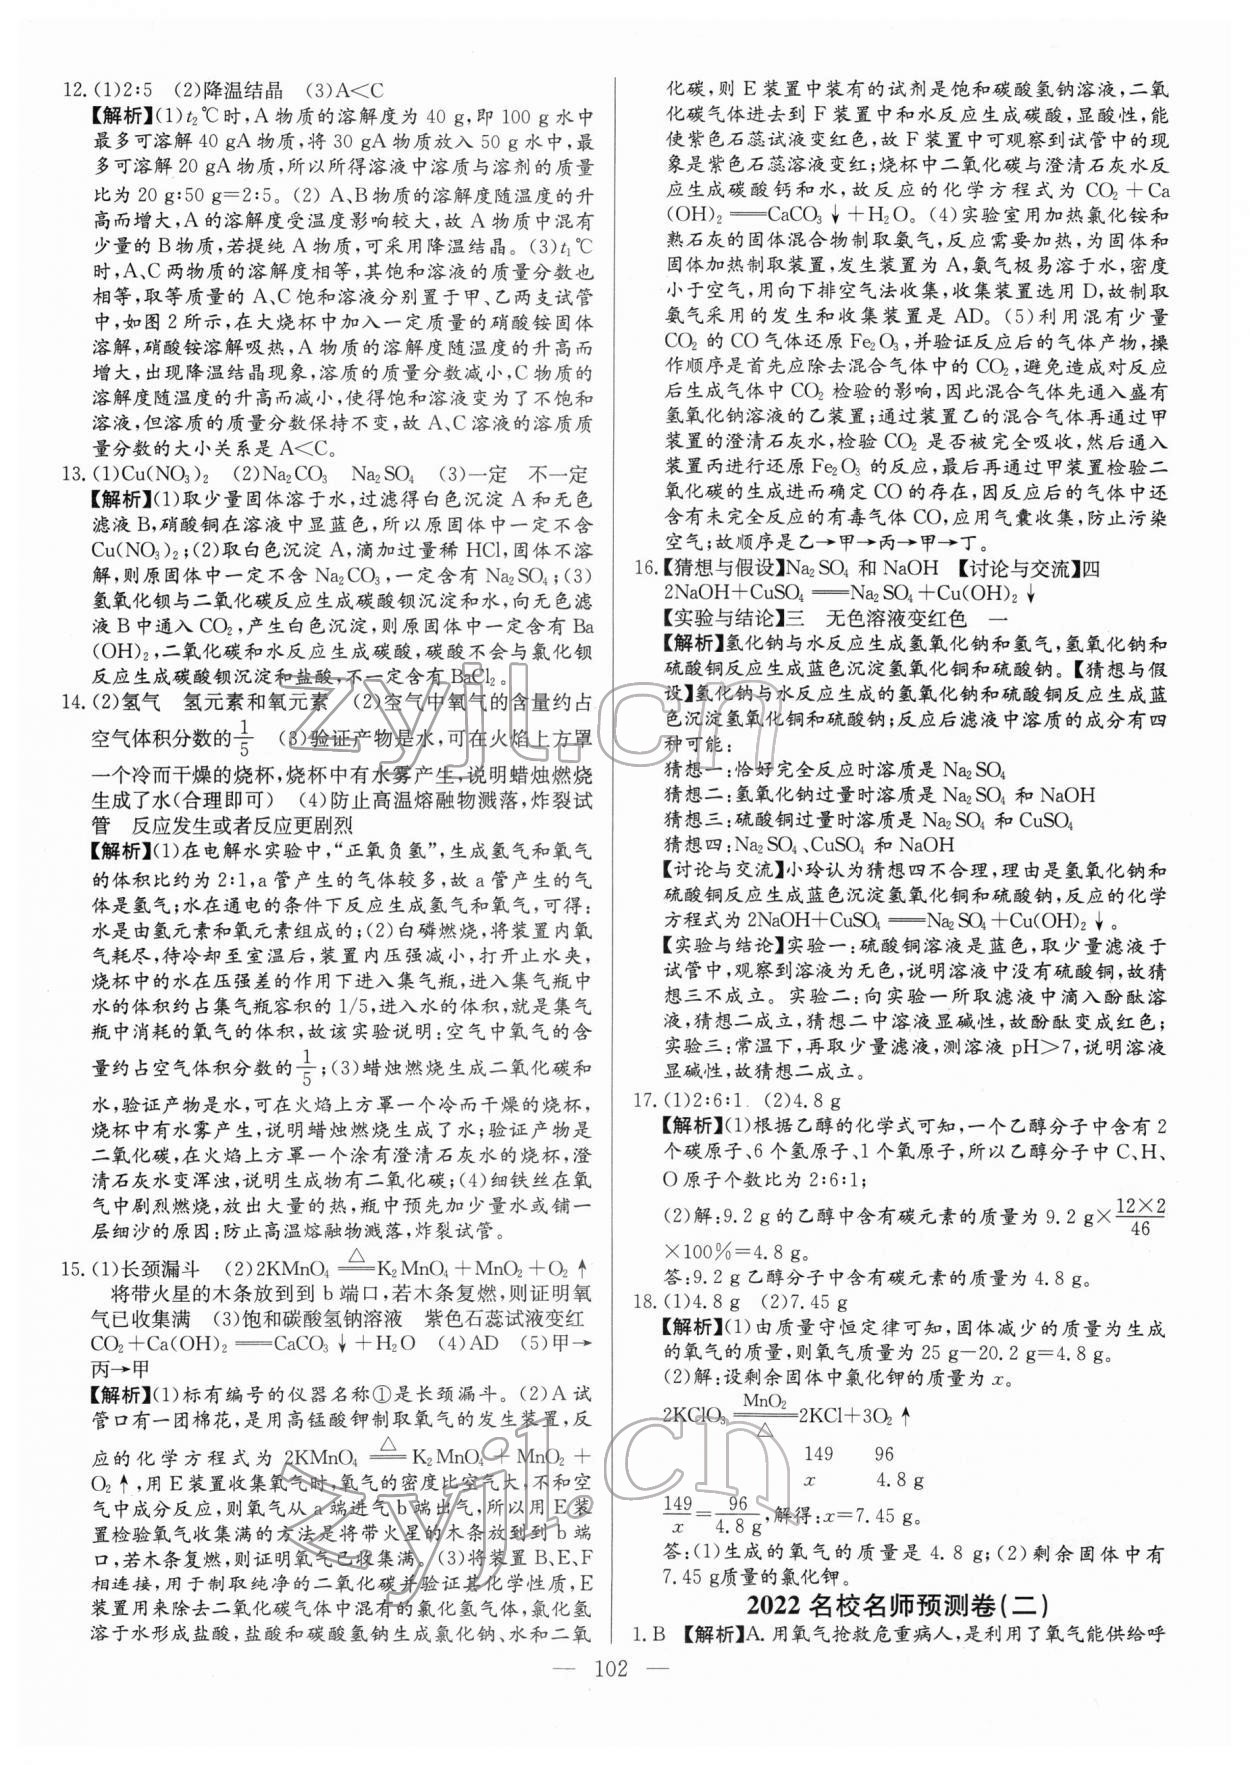 12. (1)2∶5 (2)降温结晶 (3)A<C
【解析】(1)t₂℃时,A物质的溶解度为 40 g,即 100 g 水中
最多可溶解 40 gA 物质,将 30 gA 物质放入 50 g 水中,最
多可溶解 20 gA 物质,所以所得溶液中溶质与溶剂的质量
比为 20 g∶50 g=2∶5。(2) A、B 物质的溶解度随温度的升
高而增大,A 的溶解度受温度影响较大,故 A 物质中混有
少量的 B 物质,若提纯 A 物质,可采用降温结晶。(3)t₁℃
时,A、C 两物质的溶解度相等,其饱和溶液的质量分数也
相等,取等质量的 A、C 饱和溶液分别置于甲、乙两支试管
中,如图 2 所示,在大烧杯中加入一定质量的硝酸铵固体
溶解,硝酸铵溶解吸热,A 物质的溶解度随温度的升高而
增大,出现降温结晶现象,溶质的质量分数减小,C 物质的
溶解度随温度的升高而减小,使得饱和溶液变为了不饱和
溶液,但溶质的质量分数保持不变,故 A、C 溶液的溶质质
量分数的大小关系是 A<C。
13. (1)Cu(NO₃)₂ (2)Na₂CO₃ Na₂SO₄ (3)一定 不一定
【解析】(1)取少量固体溶于水,过滤得白色沉淀 A 和无色
滤液 B,硝酸铜在溶液中显蓝色,所以原固体中一定不含
Cu(NO₃)₂;(2)取白色沉淀 A,滴加过量稀 HCl,固体不溶
解,则原固体中一定不含 Na₂CO₃,一定含有 Na₂SO₄;(3)
氢氧化钡与二氧化碳反应生成碳酸钡沉淀和水,向无色滤
液 B 中通入 CO₂,产生白色沉淀,则原固体中一定含有 Ba
(OH)₂,二氧化碳和水反应生成碳酸,碳酸不会与氯化钡
反应生成碳酸钡沉淀和盐酸,不一定含有 BaCl₂。
14. (2)氢气 氢元素和氧元素 (2)空气中氧气的含量约占
空气体积分数的1/5 (3)验证产物是水,可在火焰上方罩
一个冷而干燥的烧杯,烧杯中有水雾产生,说明蜡烛燃烧
生成了水(合理即可) (4)防止高温熔融物溅落,炸裂试
管 反应发生或者反应更剧烈
【解析】(1)在电解水实验中,“正氧负氢”,生成氢气和氧气
的体积比约为 2∶1,a 管产生的气体较多,故 a 管产生的气
体是氢气;水在通电的条件下反应生成氢气和氧气,可得:
水是由氢元素和氧元素组成的;(2)白磷燃烧,将装置内氧
气耗尽,待冷却至室温后,装置内压强减小,打开止水夹,
烧杯中的水在压强差的作用下进入集气瓶,进入集气瓶中
水的体积约占集气瓶容积的 1/5,进入水的体积,就是集气
瓶中消耗的氧气的体积,故该实验说明:空气中氧气的含
量约占空气体积分数的1/5;(3)蜡烛燃烧生成二氧化碳和
水,验证产物是水,可在火焰上方罩一个冷而干燥的烧杯,
烧杯中有水雾产生,说明蜡烛燃烧生成了水;验证产物是
二氧化碳,在火焰上方罩一个涂有澄清石灰水的烧杯,澄
清石灰水变浑浊,说明生成物有二氧化碳;(4)细铁丝在氧
气中剧烈燃烧,放出大量的热,瓶中预先加少量水或铺一
层细沙的原因:防止高温熔融物溅落,炸裂试管。
15. (1)长颈漏斗 (2)2KMnO₄ =△= K₂MnO₄+MnO₂+O₂↑
将带火星的木条放到到 b 端口,若木条复燃,则证明氧
气已收集满 (3)饱和碳酸氢钠溶液 紫色石蕊试液变红
CO₂+Ca(OH)₂══CaCO₃↓+H₂O (4)AD (5)甲→
丙→甲
【解析】(1)标有编号的仪器名称①是长颈漏斗。(2)A 试
管口有一团棉花,是用高锰酸钾制取氧气的发生装置,反
应的化学方程式为 2KMnO₄ =△= K₂MnO₄+MnO₂+
O₂↑,用 E 装置收集氧气时,氧气的密度比空气大,不和空
气中成分反应,则氧气从 a 端进气 b 端出气,所以用 E 装
置检验氧气收集满的方法是将带火星的木条放到到 b 端
口,若木条复燃,则证明氧气已收集满。(3)将装置 B、E、F
相连接,用于制取纯净的二氧化碳并验证其化学性质,E
装置用来除去二氧化碳气体中混有的氯化氢气体,氯化氢
溶于水形成盐酸,盐酸和碳酸氢钠生成氯化钠、水和二氧
化碳,则 E 装置中装有的试剂是饱和碳酸氢钠溶液,二氧
化碳气体进去到 F 装置中和水反应生成碳酸,显酸性,能
使紫色石蕊试液变红色,故 F 装置中可观察到试管中的现
象是紫色石蕊溶液变红;烧杯中二氧化碳与澄清石灰水反
应生成碳酸钙和水,故反应的化学方程式为 CO₂+Ca
(OH)₂══CaCO₃↓+H₂O。(4)实验室用加热氯化铵和
熟石灰的固体混合物制取氨气,反应需要加热,为固体和
固体加热制取装置,发生装置为 A,氨气极易溶于水,密度
小于空气,用向下排空气法收集,收集装置选用 D,故制取
氨气采用的发生和收集装置是 AD。(5)利用混有少量
CO₂ 的 CO 气体还原 Fe₂O₃,并验证反应后的气体产物,操
作顺序是首先应除去混合气体中的 CO₂,避免造成对反应
后生成气体中 CO₂ 检验的影响,因此混合气体先通入盛有
氢氧化钠溶液的乙装置;通过装置乙的混合气体再通过甲
装置的澄清石灰水,检验 CO₂ 是否被完全吸收,然后通入
装置丙进行还原 Fe₂O₃ 的反应,最后再通过甲装置检验二
氧化碳的生成进而确定 CO 的存在,因反应后的气体中还
含有未完全反应的有毒气体 CO,应用气囊收集,防止污染
空气;故顺序是乙→甲→丙→甲→丁。
16.【猜想与假设】Na₂SO₄ 和 NaOH 【讨论与交流】四
2NaOH+CuSO₄══Na₂SO₄+Cu(OH)₂↓
【实验与结论】三 无色溶液变红色 一
【解析】氢化钠与水反应生成氢氧化钠和氢气,氢氧化钠和
硫酸铜反应生成蓝色沉淀氢氧化铜和硫酸钠。【猜想与假
设】氢化钠与水反应生成的氢氧化钠和硫酸铜反应生成蓝
色沉淀氢氧化铜和硫酸钠;反应后滤液中溶质的成分有四
种可能:
猜想一:恰好完全反应时溶质是 Na₂SO₄
猜想二:氢氧化钠过量时溶质是 Na₂SO₄ 和 NaOH
猜想三:硫酸铜过量时溶质是 Na₂SO₄ 和 CuSO₄
猜想四:Na₂SO₄、CuSO₄ 和 NaOH
【讨论与交流】小玲认为猜想四不合理,理由是氢氧化钠和
硫酸铜反应生成蓝色沉淀氢氧化铜和硫酸钠,反应的化学
方程式为 2NaOH+CuSO₄══Na₂SO₄+Cu(OH)₂↓。
【实验与结论】实验一:硫酸铜溶液是蓝色,取少量滤液于
试管中,观察到溶液为无色,说明溶液中没有硫酸铜,故猜
想三不成立。实验二:向实验一所取滤液中滴入酚酞溶
液,猜想二成立,猜想二中溶液显碱性,故酚酞变成红色;
实验三:常温下,再取少量滤液,测溶液 pH>7,说明溶液
显碱性,故猜想二成立。
17. (1)2∶6∶1 (2)4.8 g
【解析】(1)根据乙醇的化学式可知,一个乙醇分子中含有 2
个碳原子、6 个氢原子、1 个氧原子,所以乙醇分子中 C、H、
O 原子个数比为 2∶6∶1;
(2)解:9.2 g 的乙醇中含有碳元素的质量为 9.2 g×(12×2)/46
×100%=4.8 g。
答:9.2 g 乙醇分子中含有碳元素的质量为 4.8 g。
18. (1)4.8 g (2)7.45 g
【解析】(1)由质量守恒定律可知,固体减少的质量为生成
的氧气的质量,则氧气质量为 25 g-20.2 g=4.8 g。
(2)解:设剩余固体中氯化钾的质量为 x。
2KClO₃ =MnO₂/△= 2KCl+3O₂↑
149 96
x 4.8 g
149/x=96/4.8 g,解得:x=7.45 g。
答:(1)生成的氧气的质量是 4.8 g;(2)剩余固体中有
7.45 g质量的氯化钾。
2022 名校名师预测卷(二)
1. B 【解析】A. 用氧气抢救危重病人,是利用了氧气能供给呼
— 102 —
zyjl.cn
zyjl.cn